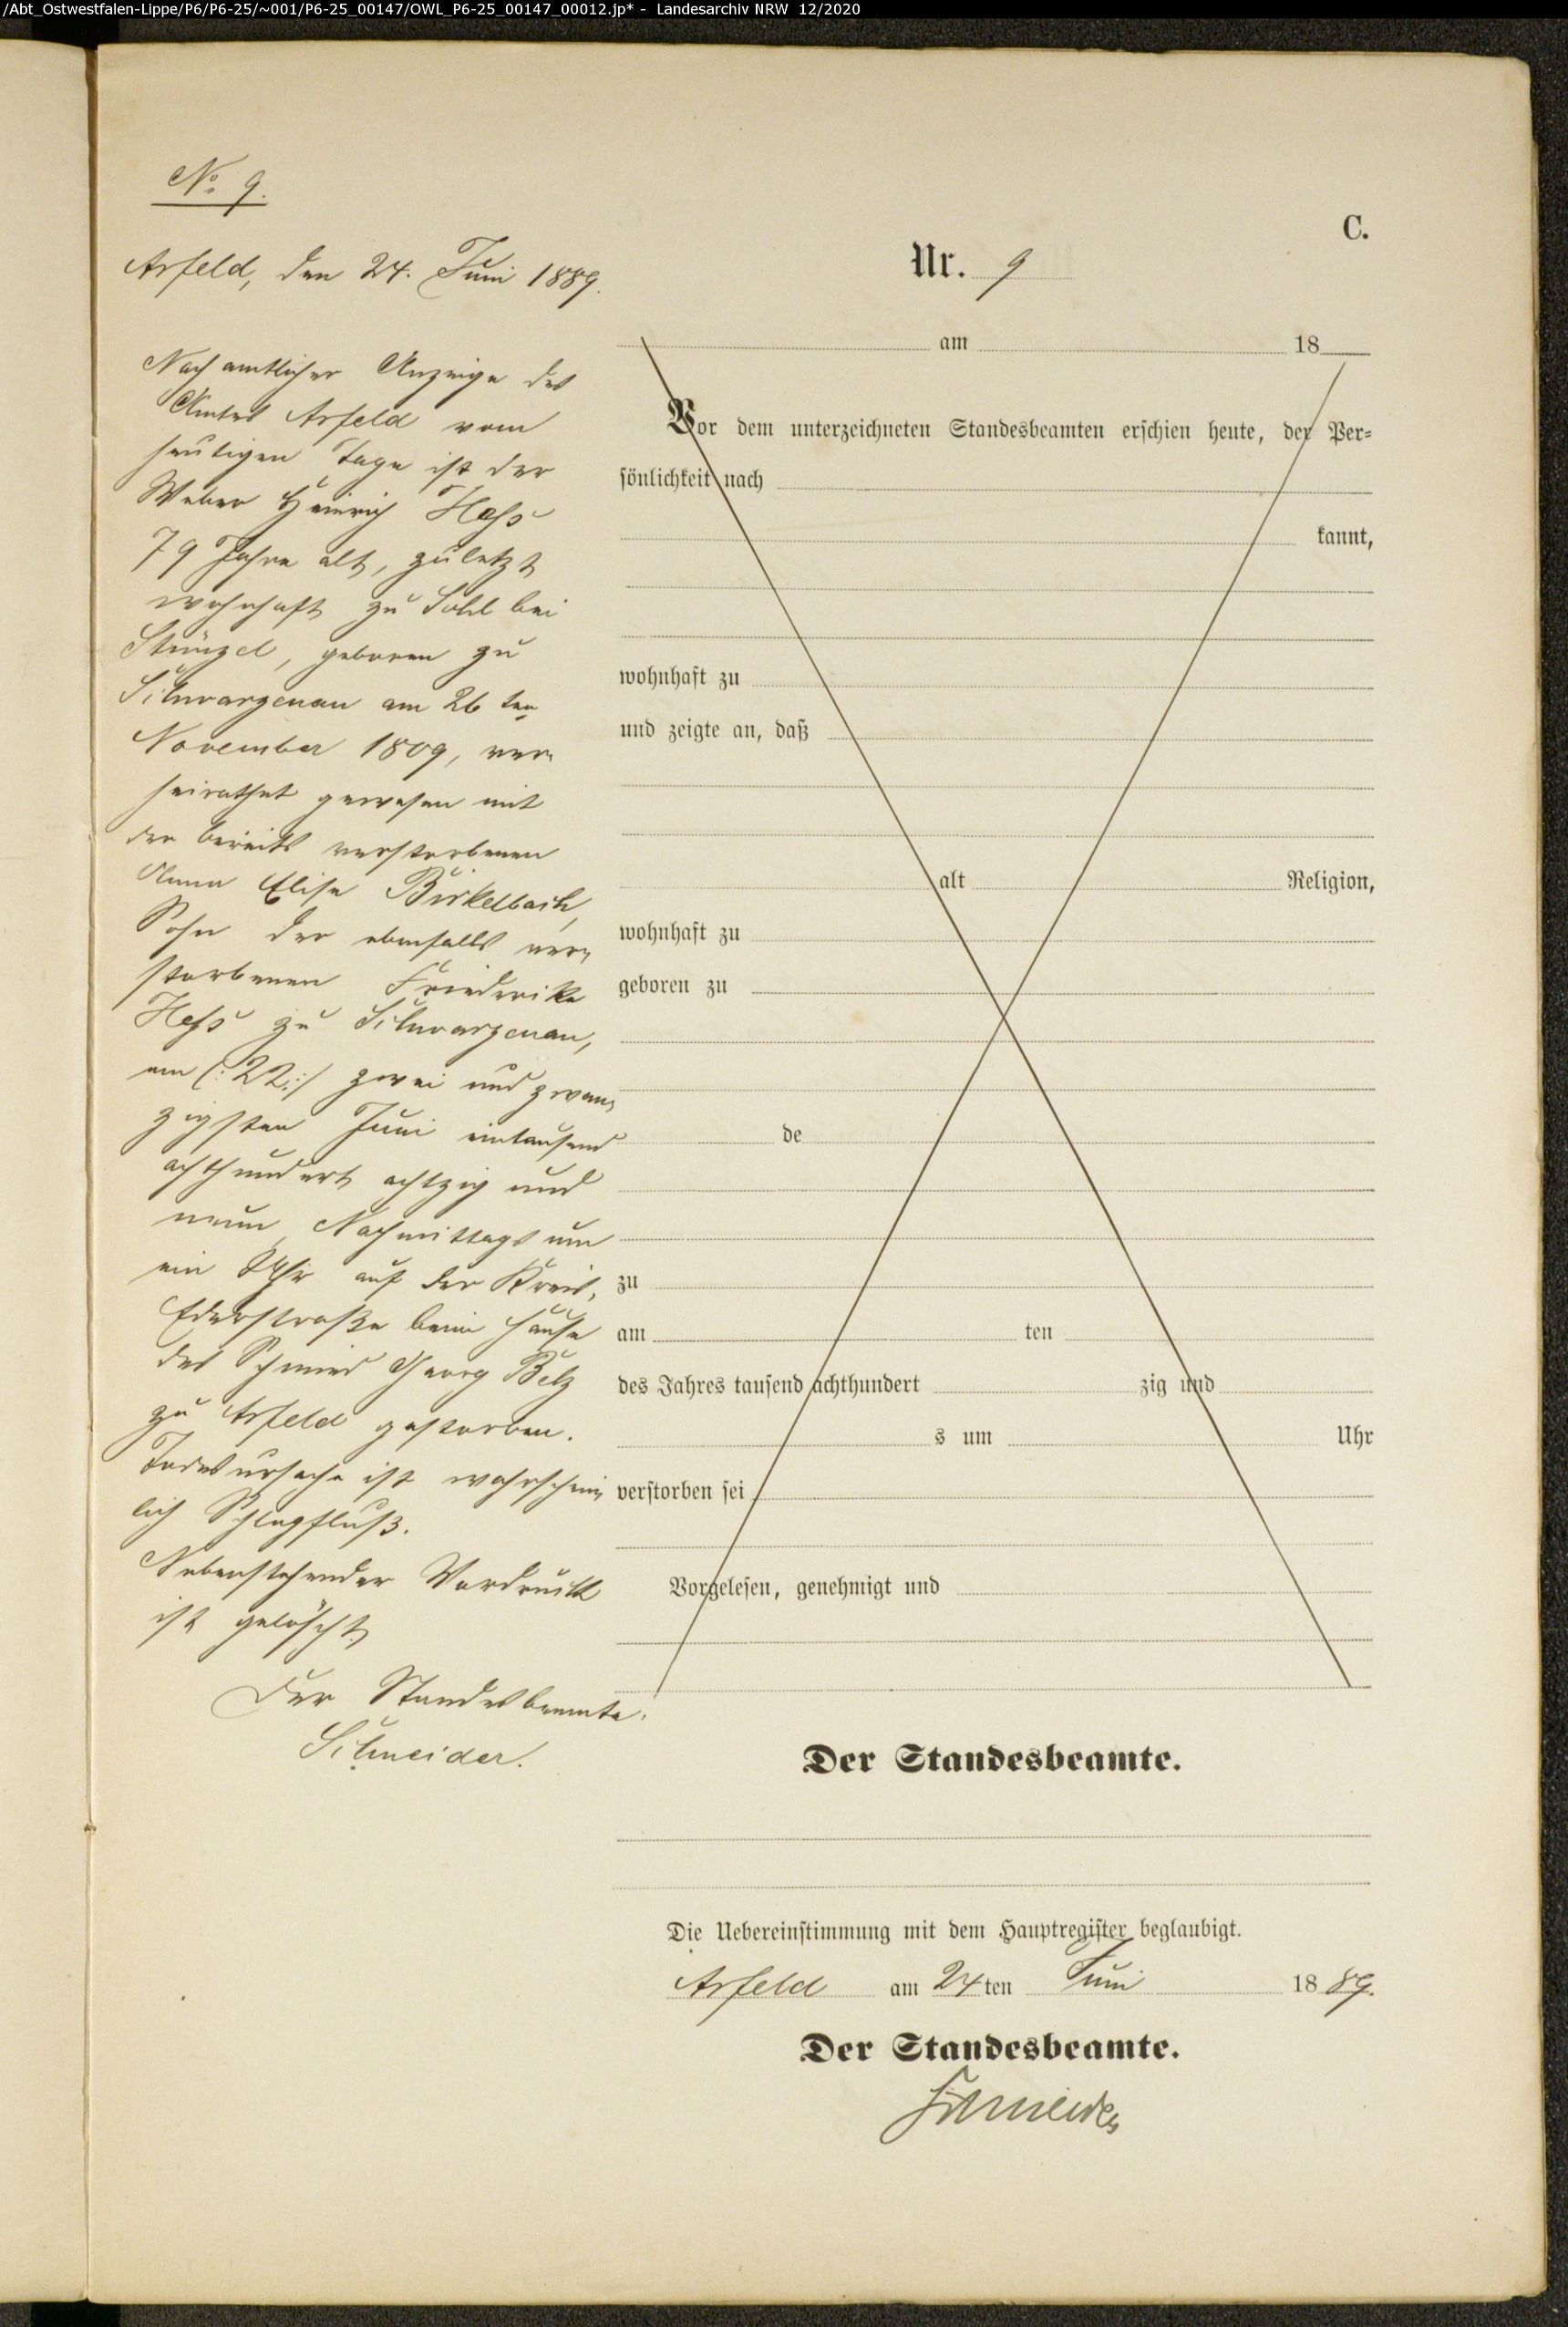 /Abt_Ostwestfalen-Lippe/P6/P6-25/~001/P6-25_00147/OWL_P6-25_00147_00012.jp* - Landesarchiv NRW 12/2020
No. 9.
Arfeld, den 24. Juni 1889.
Nach amtlicher Anzeige des
Amtes Arfeld vom
heutigen Tage ist der
Weber Heinrich Hess
79 Jahre alt, zuletzt
wohnhaft zu Sohl bei
Stünzel, geboren zu
Schwarzenau am 26ten
November 1809, ver-
heirathet gewesen mit
der bereits verstorbenen
Anna Elise Birkelbach,
Sohn der ebenfalls ver-
storbenen Friederike
Hess zu Schwarzenau,
am (:22:) zwei und zwan-
zigsten Juni eintausend
achthundert achtzig und
neun Nachmittags um
ein Uhr auf der Kreis-
Ederstraße beim Hause
des Schmied Georg Belz
zu Arfeld gestorben.
Todesursache ist wahrschein-
lich Schlagfluß.
Nebenstehender Vordruck
ist gelöscht
Der Standesbeamte.
Schneider.
C.
Nr. 9
am 18
Vor dem unterzeichneten Standesbeamten erschien heute, der Per-
sönlichkeit nach
kannt,
wohnhaft zu
und zeigte an, daß
alt Religion,
wohnhaft zu
geboren zu
de
zu
am ten
des Jahres tausend achthundert zig und
s um Uhr
verstorben sei
Vorgelesen, genehmigt und
Der Standesbeamte.
Die Uebereinstimmung mit dem Hauptregister beglaubigt.
Arfeld am 24ten Juni 1889.
Der Standesbeamte.
Schneider